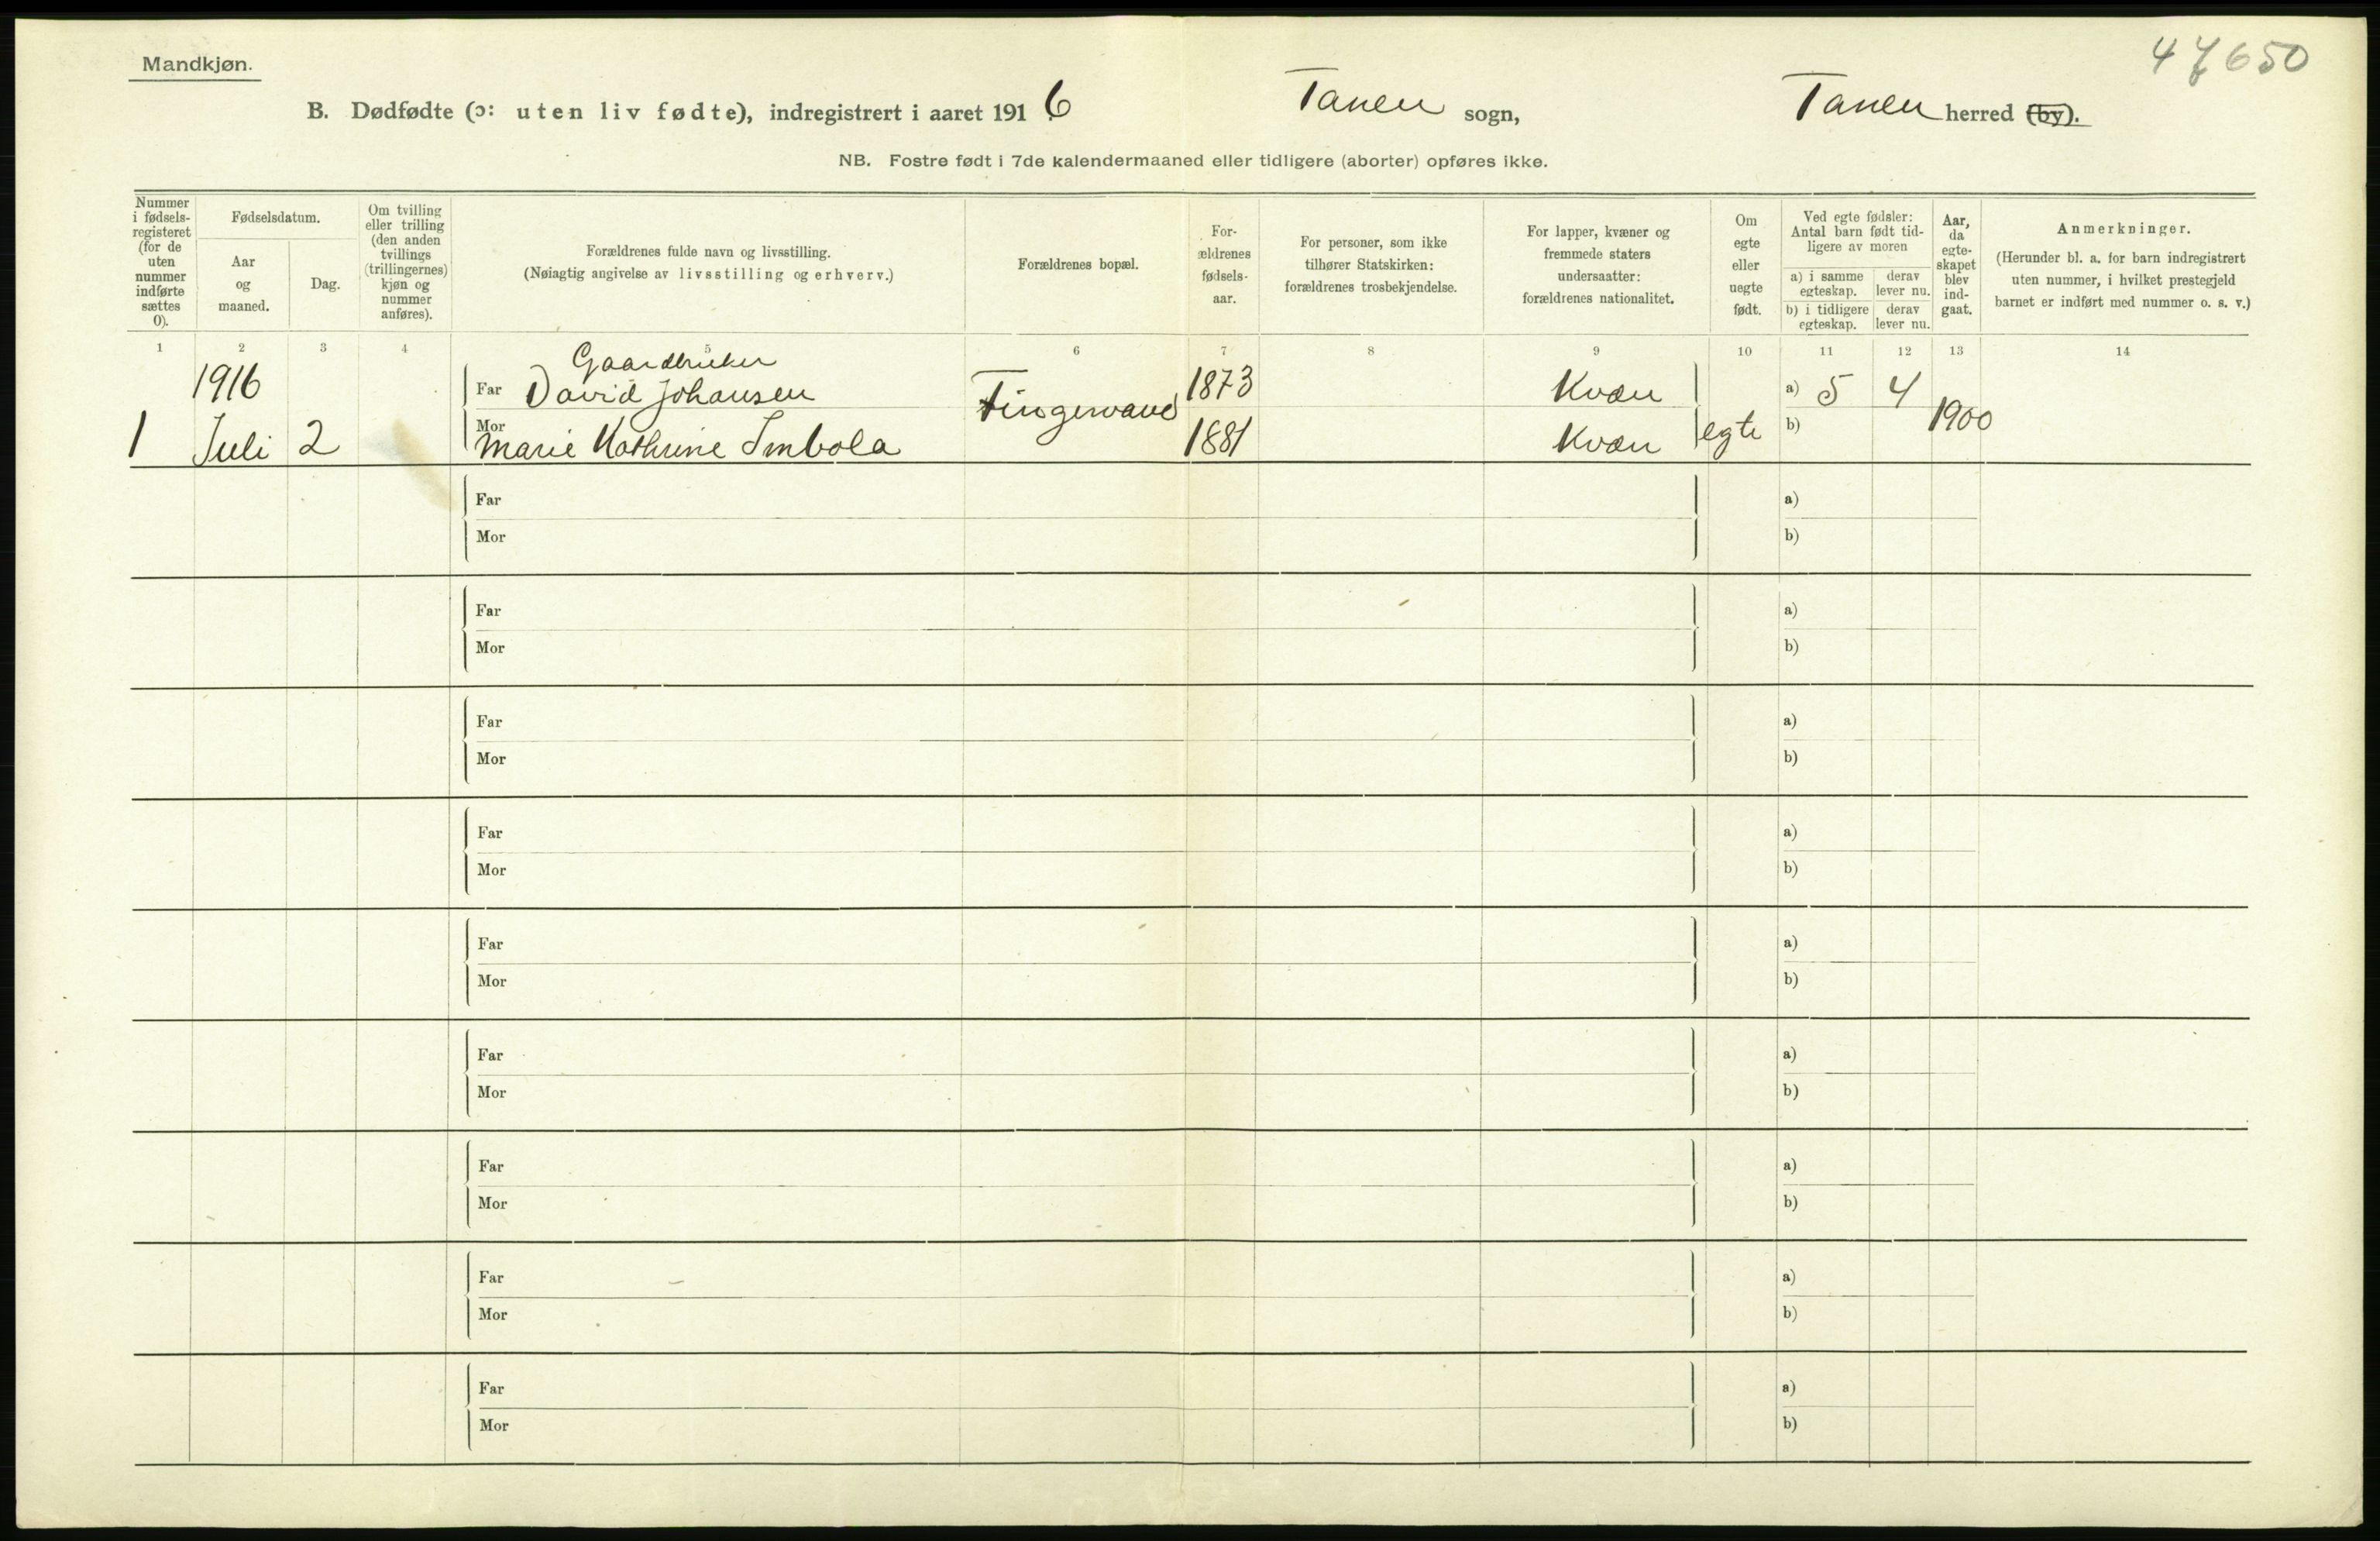 47650
Mandkjøn.
B. Dødfødte (ɔ: uten liv fødte), indregistrert i aaret 1916 Tanen sogn, Tanen herred (by).
NB. Fostre født i 7de kalendermaaned eller tidligere (aborter) opføres ikke.
Nummer
i fødsels-
registeret
(for de
uten
nummer
indførte
sættes
0).
Fødselsdatum.
Aar
og
maaned.
Dag.
Om tvilling
eller trilling
(den anden
tvillings
(trillingernes)
kjøn og
nummer
anføres).
Forældrenes fulde navn og livsstilling.
(Nøiagtig angivelse av livsstilling og erhverv.)
Forældrenes bopæl.
For-
ældrenes
fødsels-
aar.
For personer, som ikke
tilhører Statskirken:
forældrenes trosbekjendelse.
For lapper, kvæner og
fremmede staters
undersaatter:
forældrenes nationalitet.
Om
egte
eller
uegte
født.
Ved egte fødsler:
Antal barn født tid-
ligere av moren
a) i samme
egteskap.
derav
lever nu.
b) i tidligere
egteskap.
derav
lever nu.
Aar,
da
egte-
skapet
blev
ind-
gaat.
Anmerkninger.
(Herunder bl. a. for barn indregistrert
uten nummer, i hvilket prestegjeld
barnet er indført med nummer o. s. v.)
1 2 3 4 5 6 7 8 9 10 11 12 13 14
Gaardbruker
1916 Far David Johansen 1873 Kvæn a) 5 4
1 Juli 2 Mor Marie Kathrine Imbola 1881 Kvæn egte b) 1900
Far a)
Mor b)
Far a)
Mor b)
Far a)
Mor b)
Far a)
Mor b)
Far a)
Mor b)
Far a)
Mor b)
Far a)
Mor b)
Far a)
Mor b)
Far a)
Mor b)